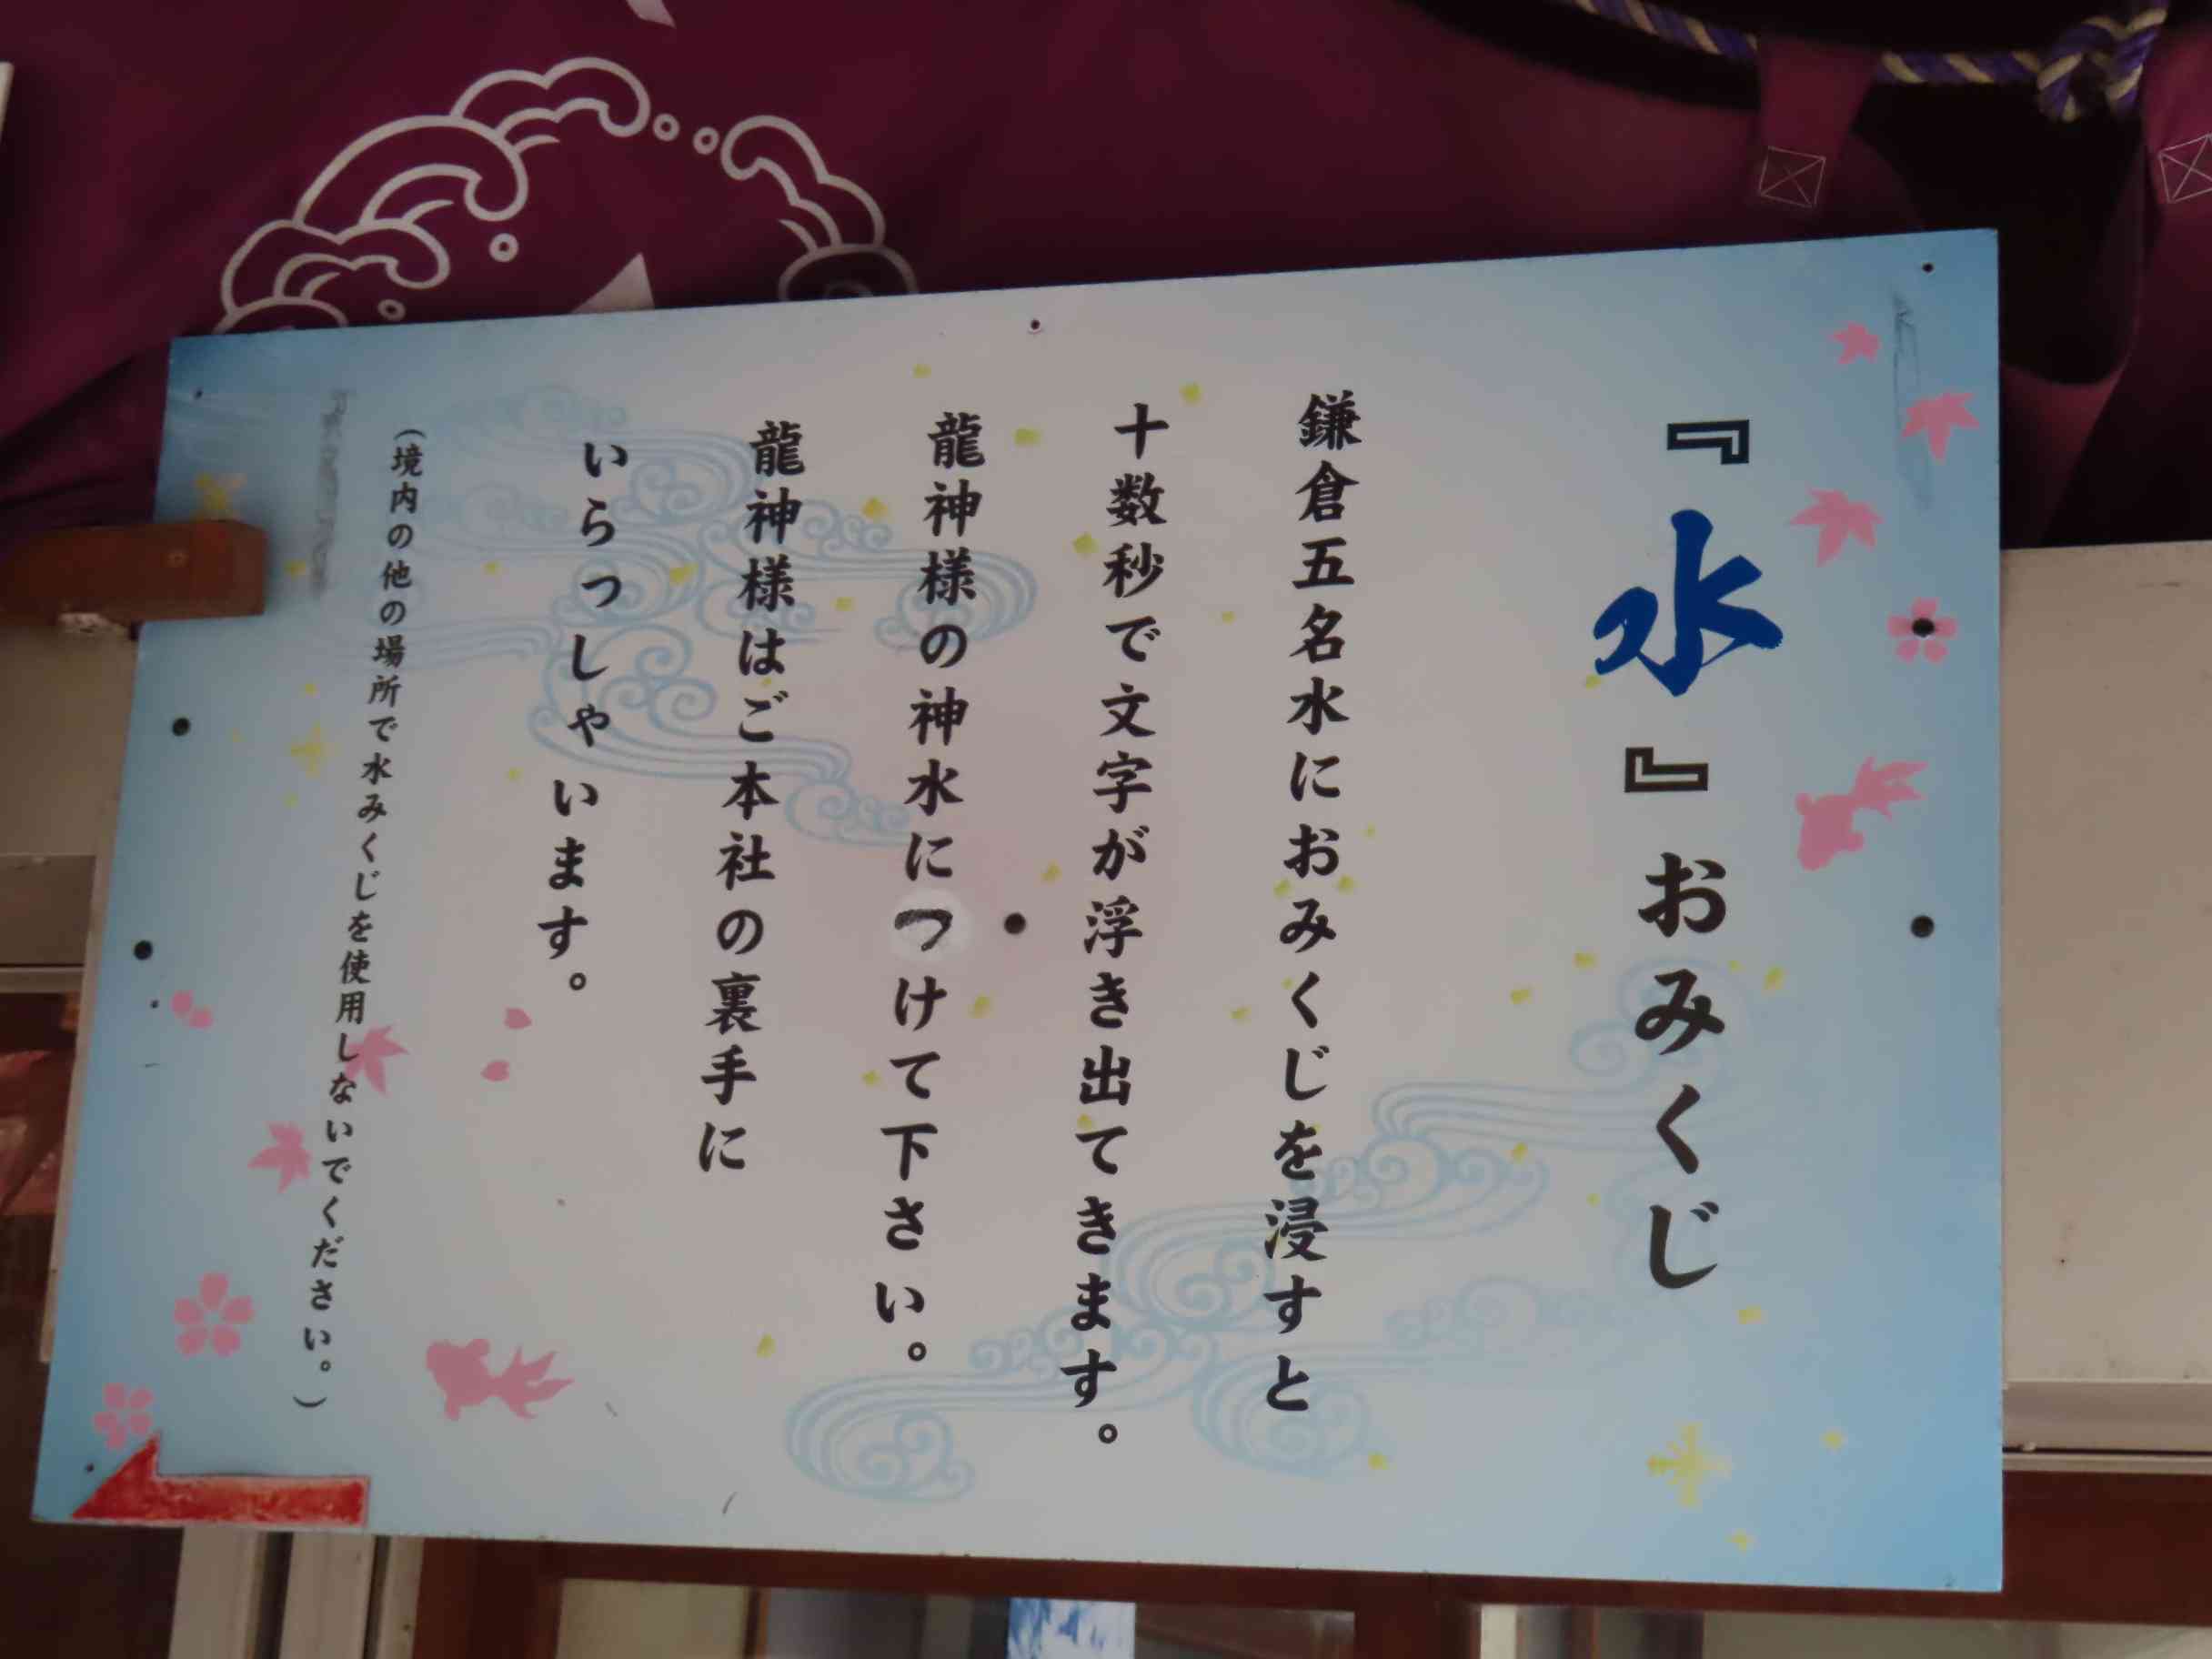 『水』おみくじ
鎌倉五名水におみくじを浸すと
十数秒で文字が浮き出てきます。
龍神様の神水につけて下さい。
龍神様はご本社の裏手に
いらっしゃいます。
（境内の他の場所で水みくじを使用しないでください。）